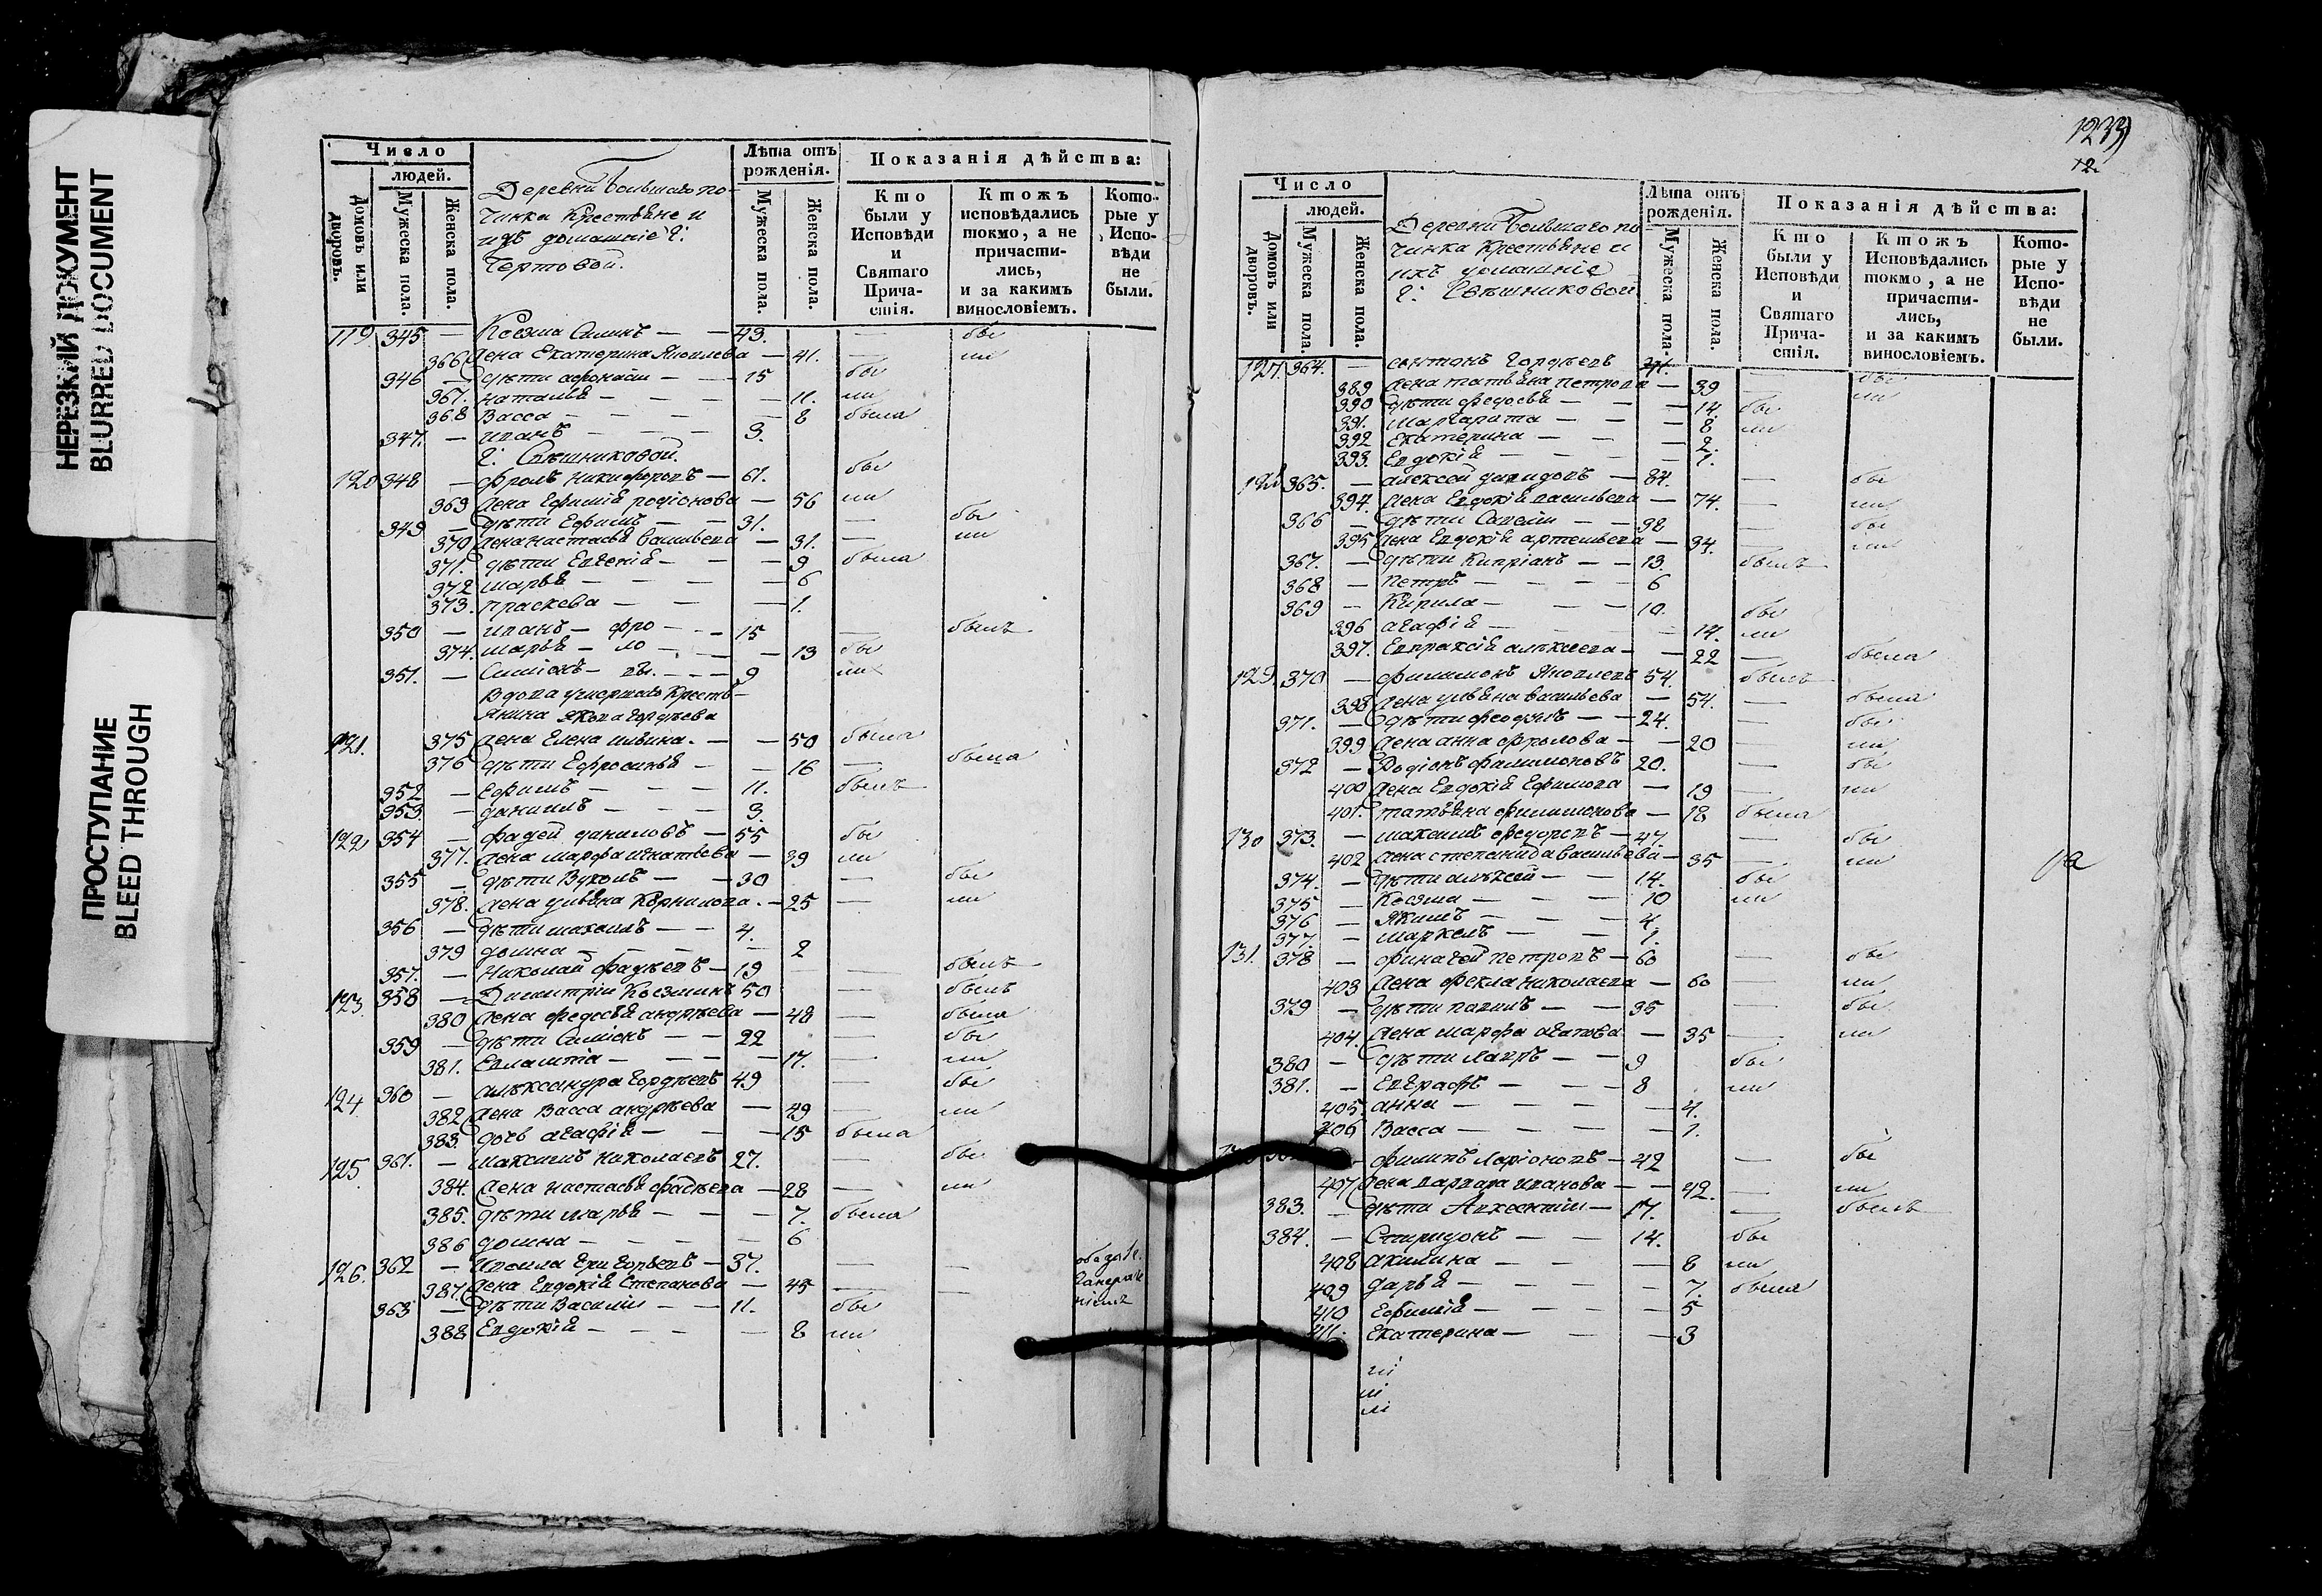 НЕРЕЗКИЙ ДОКУМЕНТ
BLURRED DOCUMENT
ПРОСТУПАНИЕ
BLEED THROUGH
Число
людей.
Домовъ или дворовъ.
Мужеска пола.
Женска пола.
Деревни Большаго по-
чинка крестьяне и
ихъ домашніе г:
Чертовой.
Лѣта отъ рожденія.
Мужеска пола.
Женска пола.
Показанія дѣйства:
Кто были у Исповѣди и Святаго Причастія.
Ктожъ исповѣдались токмо, а не причастились, и за какимъ винословіемъ.
Которые у Исповѣди не были.
119 345 — Козма Саминъ — — 43. — бы
366 Жена Екатерина Яковлева — 41. — ли
346 — дѣти афонасiи — — 15 бы
367. наталья — — — 11. ли
368 Васса — — — — 8 была
347. — иванъ — — — 3.
г: Свѣшниковой.
120 348 — фролъ никифоровъ — 61. бы
369 Жена Ефимія родіонова — 56 ли
349 — дѣти Ефимъ — — 31. — бы
370 Жена настасья Васильева — 31. — ли
371. дѣти Евгенія — — — 9 была
372 марья — — — — 6
373. праскева — — — 1.
350 — иванъ — фро — — 15 — былъ
374. марья — ло — — — 13 бы
351. — Симіонъ — вы. — — 9 ли
Вдова умершаго Кресть-
янина якова гордѣева
121. 375 Жена Елена ильина. — — 50 была
376 дѣти Ефросинья — — 16 — была
352 — Ефимъ — — — 11. былъ
353 — данилъ — — — 3.
122 354 — фадей даниловъ — 55 бы
377. Жена марфа игнатьева — 39 ли
355 — дѣти Вуколъ — — 30 — бы
378. Жена ульяна Корнилова. — 25 — ли
356 — дѣти михаилъ — — 4.
379 домна — — — — 2
357. — Николай фадѣевъ — 19 — былъ
123. 358 — Димитріи Козминъ 50 — былъ
380 Жена федосья андрѣева — 48 — была
359 — дѣти Симіонъ — — 22 — бы
381. Евлампіа — — — — 17. — ли
124 360 — алѣксандра гордѣевъ 49 — бы
382 Жена Васса андрѣева — 49 — ли
383. дочь агафія — — — 15 была
125 361. — максимъ николаевъ 27. — бы
384. Жена настасья фадѣева — 28 — ли
385. дѣти марья — — — 7. была
386 домна — — — — 6
126. 362 — григорьевъ — 37. — —
387. Жена Евдокія Степанова — 45 — —
363 — дѣти Василіи — — 11. бы
388 Евдокія — — — — 8 ли
12
Число
людей.
Домовъ или дворовъ.
Мужеска пола.
Женска пола.
Деревни Большаго по
чинка крестьяне и
ихъ домашніе
г: Свѣшниковой
Лѣта отъ рожденія.
Мужеска пола.
Женска пола.
Показанія дѣйства:
Кто были у Исповѣди и Святаго Причастія.
Ктожъ Исповѣдались токмо, а не причастились, и за какимъ винословіемъ.
Которые у Исповѣди не были.
127. 364. — антонъ гордѣевъ 41. — бы
389 Жена татьяна петрова — 39 — ли
390 дѣти федосья — — — 14. бы
391. маргарита — — — 8 ли
392 Екатерина — — — 2.
393. Евдокія — — — — 1.
128 365. — алексей давидовъ — 84. — бы
394. Жена Евдокія васильева — 74. — ли
366 — дѣти Савелiи — — 38 — бы
395 Жена Евдокія артемьева — 34. — ли
367. — дѣти Кипріанъ — — 13. былъ
368 — петръ — — — — 6
369 — Кирила — — — 10. бы
396 агафія — — — — 14. ли
397. Евпраксія алѣксеева — — 22 — была
129. 370 — филимонъ Яковлевъ 54. былъ
398 Жена ульяна васильева — 54. — была
371. — дѣти феодулъ — — 24. — бы
399 Жена анна фролова — — 20 — ли
372 — Родіонъ филимоновъ 20. — бы
400 Жена Евдокія Ефимова — 19 — ли
401. татьяна филимонова — 18 была
130 373. — максимъ федоровъ — 47. — бы
402 Жена степанида васильева — 35 — ли
374. — дѣти алѣксей — — 14. бы
375 — Козма — — — 10 ли
376 — Якимъ — — — 4.
377. — маркелъ — — — 1.
131. 378 — финагей петровъ — 60 — бы
403 Жена фекла николаева — 60 — ли
379 — дѣти павилъ — — 35 — бы
404. Жена марфа агапова — 35 — ли
380 — дѣти лавръ — — 9 бы
381. — Евграфъ — — — 8 ли
405. анна — — — — 4.
406 Васса — — — — 1.
— филипъ Ларіоновъ — 42 — бы
407 Жена варвара иванова — — 42. — ли
383. — дѣти Авксентіи — 17. — былъ
384. — Спиридонъ — — 14. бы
408 акилина — — — 8 ли
409 дарья — — — — 7. была
410 Ефимія — — — — 5
411. Екатерина — — — 3